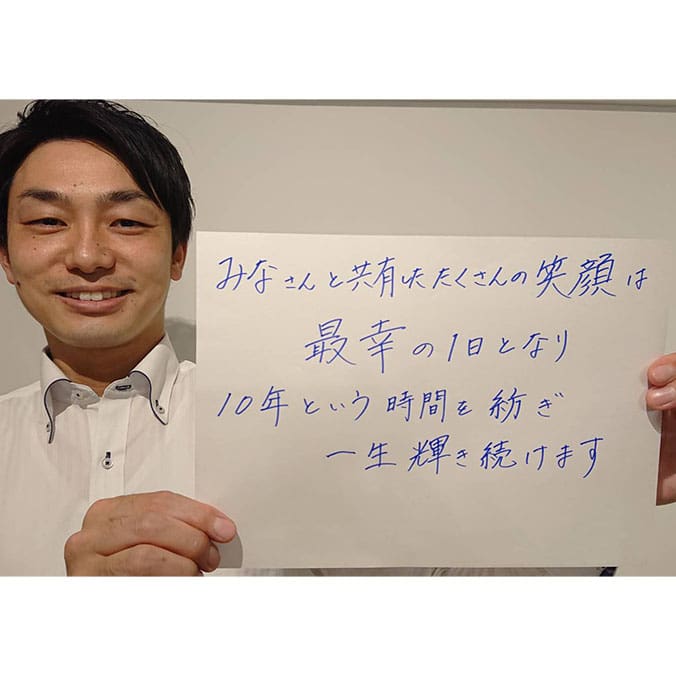 みなさんと共有したたくさんの笑顔は
最幸の1日となり
10年という時間を紡ぎ
一生輝き続けます